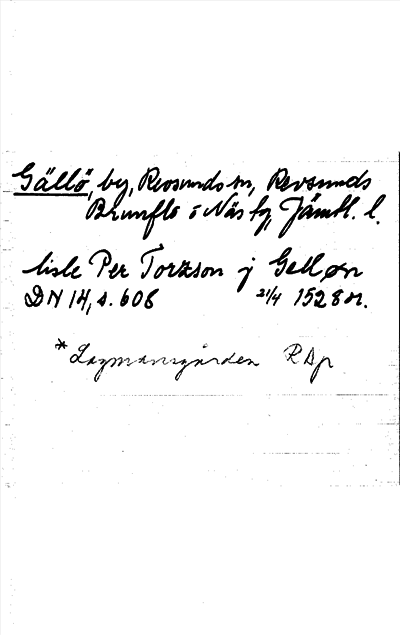 Gällö, by, Revsunds sn, Revsunds
Brunflo o Näs tg, Jämtl. l.
lisle Per Torkson j Gelløn
DN 14, s. 606 21/4 1528 or.
*Lagmansgården RAp